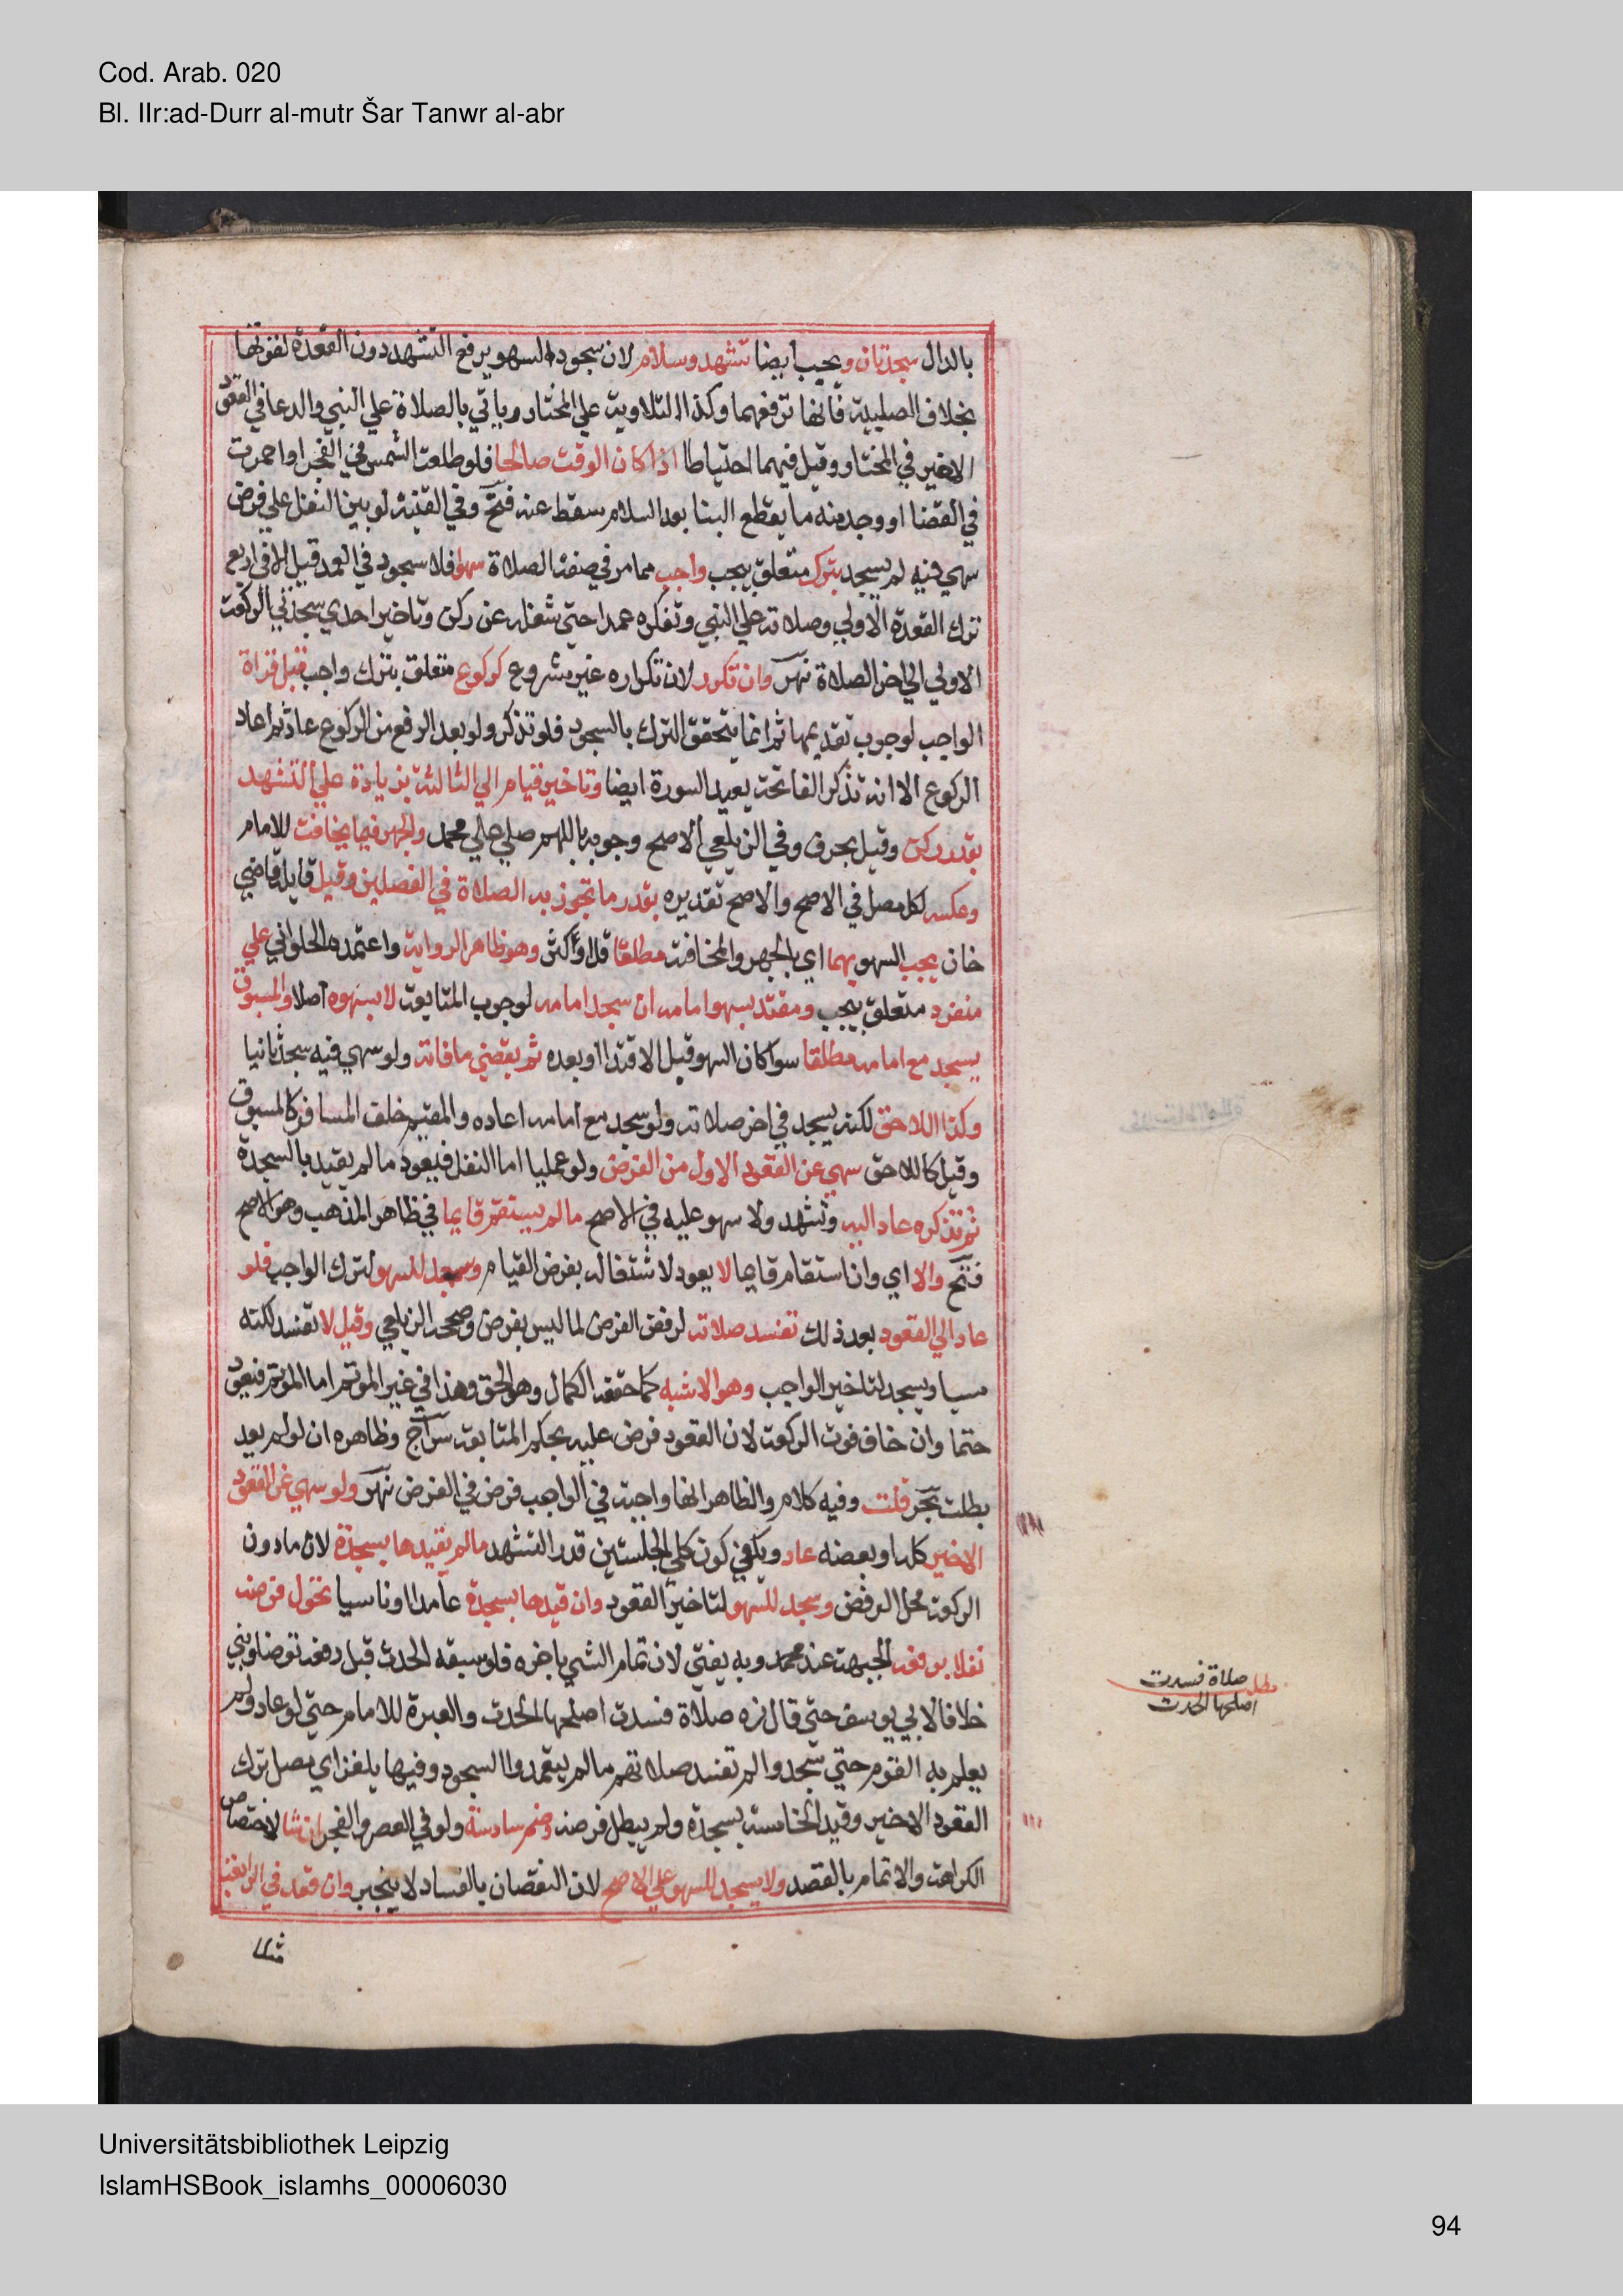 Cod. Arab. 020
Bl. IIr:ad-Durr al-mutr Šar Tanwr al-abr
بالدال سجدتان ويجب ايضا تشهد وسلام لان سجود السهو يرفع التشهد دون القعدة لقوتها
بخلاف الصلبية فانها ترفعهما وكذا التلاوية علي المختار وياتي بالصلاة علي النبي والدعا في القعود
الاخير في المختار وقيل فيهما احتياطا اذا كان الوقت صالحا فلو طلعت الشمس في الفجر او احمرت
في القضا او وجد منه ما يقطع البنا بعد السلام سقط عنه فتح وفي القنية لو بني النفل علي فرض
سهي فيه لم يسجد بترك متعلق بيجب واجب مما مر في صفة الصلاة سهوا فلا سجود في العمد قيل الا في اربع
ترك القعدة الاولي وصلاته علي النبي وتفكره عمدا حتي شغله عن ركن وتاخير احدي سجدتي الركعة
الاولي الي اخر الصلاة نهر وان تكرر لان تكراره غير مشروع كركوع متعلق بترك واجب قبل قراة
الواجب لوجوب تقديمها ثم انما يتحقق الترك بالسجود فلو تذكر ولو بعد الرفع من الركوع عاد ثم اعاد
الركوع الا انه تذكر الفاتحة يعيد السورة ايضا وتاخير قيام الي الثالثة بزيادة علي التشهد
بقدر ركن وقيل بحرف وفي الزيلعي الاصح وجوبه باللهم صلي علي محمد والجهر فيما يخافت للامام
وعكسه لكل مصل في الاصح والاصح تقديره بقدر ما تجوز به الصلاة في الفصلين وقيل قايله قاضي
خان يجب السهو بهما اي بالجهر والمخافتة مطلقا قل او اكثر وهو ظاهر الرواية واعتمده الحلواني علي
منفرد متعلق بيجب ومقتد بسهو امامه ان سجد امامه لوجوب المتابعة لا بسهوه اصلا والمسبوق
يسجد مع امامه مطلقا سوا كان السهو قبل الاقتدا او بعده ثم يقضي ما فاته ولو سهي فيه سجد ثانيا
وكذا اللاحق لكنه يسجد في اخر صلاته ولو سجد مع امامه اعاده والمقيم خلف المسافر كالمسبوق
وقيل كاللاحق سهي عن القعود الاول من الفرض ولو عمليا اما النفل فيعود ما لم يقيد بالسجدة
ثم تذكره عاد اليه وتشهد ولا سهو عليه في الاصح ما لم يستقم قايما في ظاهر المذهب وهو الاصح
فتح والا اي وان استقام قايما لا يعود لاشتغاله بفرض القيام وسجد للسهو لترك الواجب فلو
عاد الي القعود بعد ذلك تفسد صلاته لرفض الفرض لما ليس بفرض وصححه الزيلعي وقيل لا تفسد لكنه
مسيا ويسجد لتاخير الواجب وهو الاشبه كما حققه الكمال وهو الحق وهذا في غير الموتم اما الموتم فيعود
حتما وان خاف فوت الركعة لان القعود فرض عليه بحكم المتابعة سراج وظاهره ان لو لم يعد
بطلت بحر قلت وفيه كلام والظاهر انها واجبة في الواجب فرض في الفرض نهر ولو سهي عن القعود
الاخير كله او بعضه عاد ويكفي كون كلي الجلستين قدر التشهد ما لم يقيدها بسجدة لان ما دون
الركعة محل الرفض وسجد للسهو لتاخير القعود وان قيدها بسجدة عامدا او ناسيا تحول فرضه
نفلا برفعه الجبهة عند محمد وبه يفتي لان تمام الشي باخره فلو سبقه الحدث قبل رفعه توضا وبني
خلافا لابي يوسف حتي قال زه صلاة فسدت اصلحها الحدث والعبرة للامام حتي لو عاد ولم
يعلم به القوم حتي سجدوا لم تفسد صلاتهم ما لم يتعمدوا السجود وفيها يلغز اي مصل ترك
القعود الاخير وقيد الخامسة بسجدة ولم يبطل فرضه وضم سادسة ولو في العصر والفجر ان شا لاختصاص
الكراهة والاتمام بالقصد ولا يسجد للسهو علي الاصح لان النقصان بالفساد لا ينجبر وان قعد في الرابعة
مثلا
مطلب صلاة فسدت
اصلحها الحدث
Universitätsbibliothek Leipzig
IslamHSBook_islamhs_00006030
94